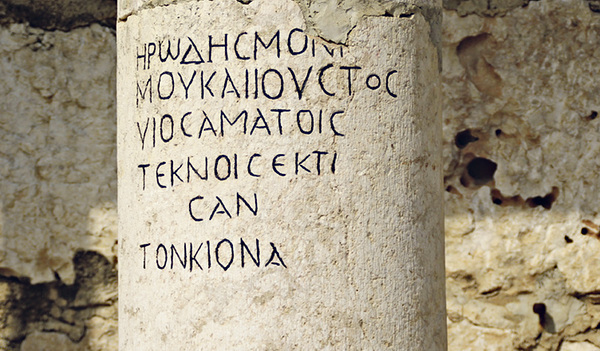 ΗΡωΔΗϹΜΟΝΙ
ΜΟΥΚΑΙΙΟΥϹΤΟϹ
ΥΙΟϹΑΜΑΤΟΙϹ
ΤΕΚΝΟΙϹΕΚΤΙ
ϹΑΝ
ΤΟΝΚΙΟΝΑ